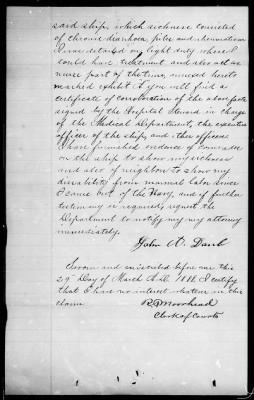 said ship, which sickness consisted
of chronic diarrhoea, piles and rheumatism
I was detailed on light duty where I
could have treatment and also act as
nurse part of the time, annexed hereto
marked exhibit A you will find a
certificate of corroboration of the above facts
signed by the Hospital Steward in charge
of the Medical Department, the executive
officer of the ship, and other officers
I have furnished evidence of comrades
on the ship to show my sickness
and also of neighbors to show my
disability from manual labor since
I came out of the Navy, and if further
testimony is required, request the
Department to notify my attorney
immediately.
John A.
Sworn and subscribed before me this
29" Day of March A.D. 1888. I certify
that I have no interest whatever in this
claim
R. Moorhead
Clerk of Courts